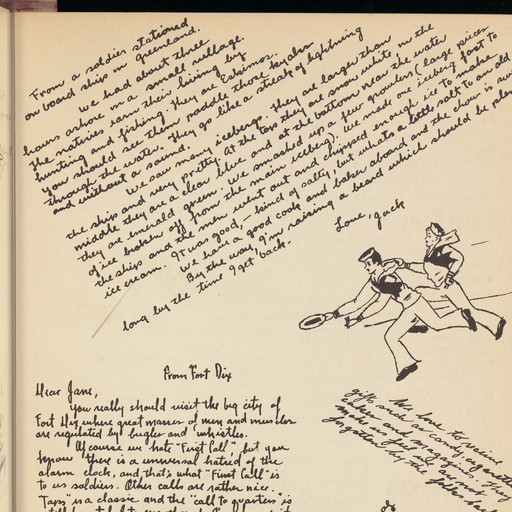 From a soldier stationed
on board ship in Greenland.
We had about three
hours ashore in a small village.
The natives earn their living by
hunting and fishing. They are Eskimos.
You should see them paddle those kayaks
through the water. They go like a streak of lightning
and without a sound.
We saw many icebergs. They are larger than
the ship and very pretty. At the top they are snow white, in the
middle they are a clear blue and at the bottom near the water
they are emerald green. We smashed up a few growlers (large pieces
of ice broken off from the main iceberg). We made one iceberg fast to
the ship and the men went out and chipped enough ice to make
ice cream. It was good, - kind of salty, but what's a little salt to an old
We have a good cook and baker aboard and the chow is
By the way, I'm raising a beard which should be
long by the time I get back.
Love, Jack
From Fort Dix
Dear Jane,
You really should visit the big city of
Fort Dix where great masses of men and muscles
are regulated by bugles and whistles.
Of course we hate "First Call", but you
know there is a universal hatred of the
alarm clock, and that's what "First Call" is
to us soldiers. Other calls are rather nice.
"Taps" is a classic and the "call to quarters" is
We love to receive
gifts such as candy, cigarettes
and magazines. They
make us feel we are not
forgotten by the folks